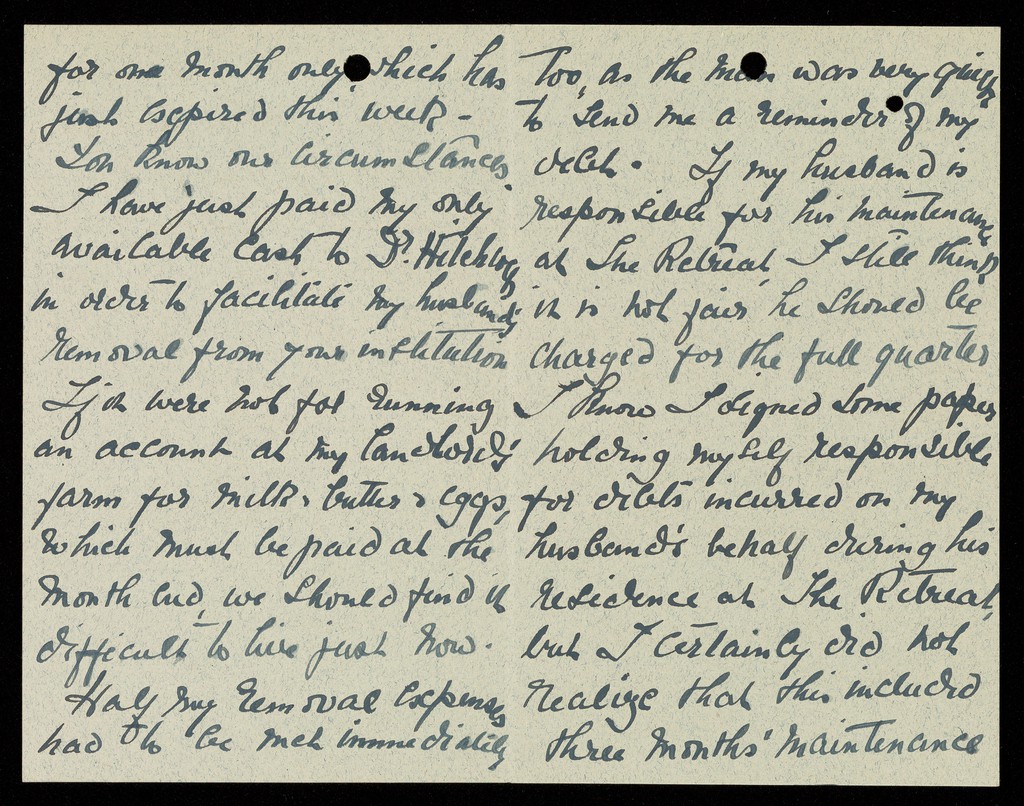 for one month only which has
just expired this week -
You know our circumstances
I have just paid my only
available cash to Dr. Hitchings
in order to facilitate my husband's
removal from your institution
If it were not for running
an account at my landlord's
farm for milk, butter & eggs,
which must be paid at the
month end, we should find it
difficult to live just now.
Half my removal expenses
had to be met immediately
too, as the man was very quick
to send me a reminder of my
debt. If my husband is
responsible for his maintenance
at The Retreat, I still think
it is not fair he should be
charged for the full quarter
I know I signed some papers
holding myself responsible
for debts incurred on my
husband's behalf during his
residence at The Retreat,
but I certainly did not
realize that this included
three months' maintenance